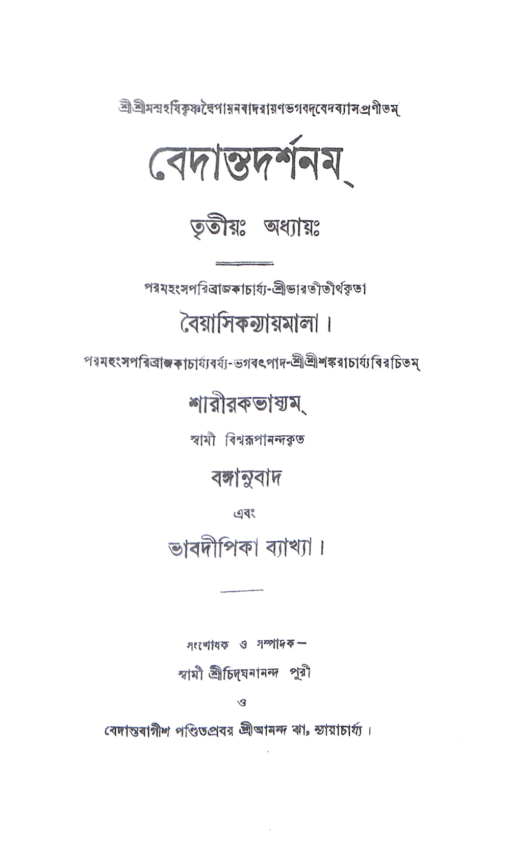 শ্রীশ্রীমন্মহর্ষিকৃষ্ণদ্বৈপায়নবাদরায়ণভগবদ্‌বেদব্যাসপ্রণীতম্
বেদান্তদর্শনম্
তৃতীয়ঃ অধ্যায়ঃ
পরমহংসপরিব্রাজকাচার্য্য-শ্রীভারতীতীর্থকৃতা
বৈয়াসিকন্যায়মালা।
পরমহংসপরিব্রাজকাচার্য্যবর্য্য-ভগবৎপাদ-শ্রীশ্রীশঙ্করাচার্য্যবিরচিতম্
শারীরকভাষ্যম্
স্বামী বিশ্বরূপানন্দকৃত
বঙ্গানুবাদ
এবং
ভাবদীপিকা ব্যাখ্যা।
সংশোধক ও সম্পাদক—
স্বামী শ্রীচিদ্‌ঘনানন্দ পুরী
ও
বেদান্তবাগীশ পণ্ডিতপ্রবর শ্রীআনন্দ ঝা, ন্যায়াচার্য্য।